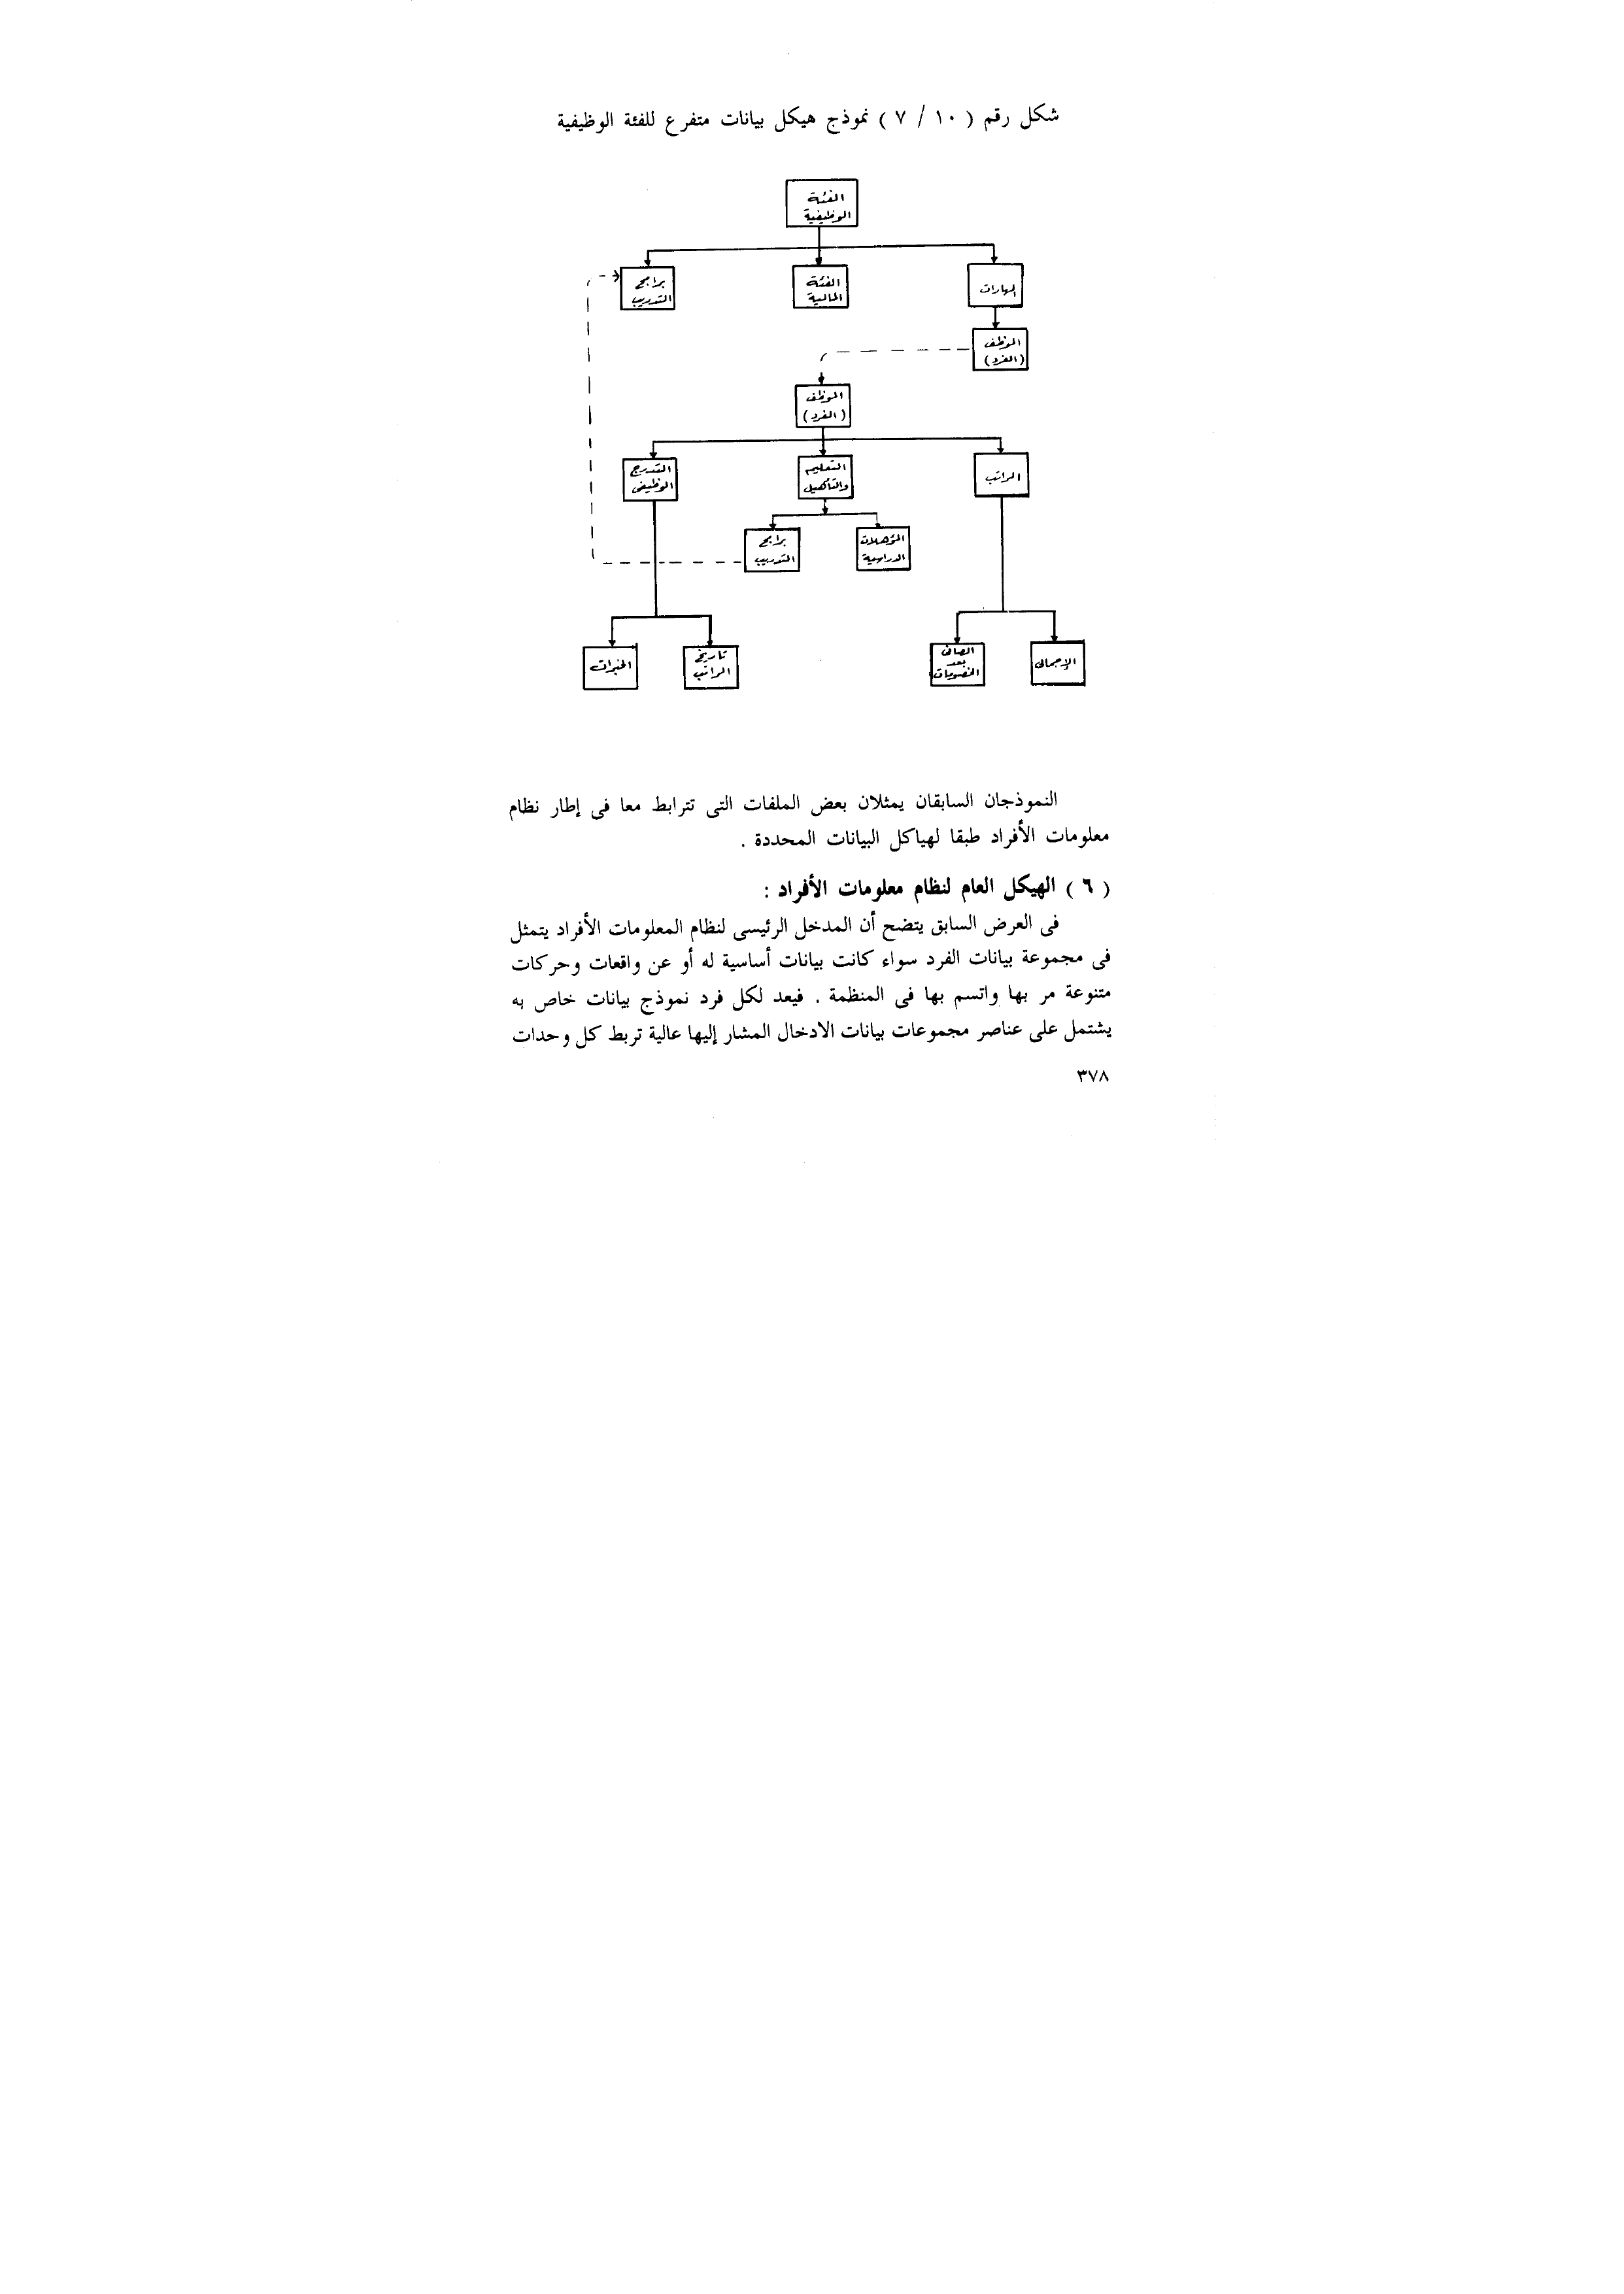 شكل رقم ( ١٠ / ٧ ) نموذج هيكل بيانات متفرع للفئة الوظيفية
الفئة
الوظيفية
المهارات
الفئة
المالية
برامج
التدريب
الموظف
(الفرد)
الموظف
(الفرد)
الراتب
التعليم
والتأهيل
التدرج
الوظيفى
المؤهلات
الدراسية
برامج
التدريب
الإجمالى
الصافى
بعد
الخصومات
تاريخ
الراتب
الخبرات
النموذجان السابقان يمثلان بعض الملفات التى تترابط معا فى إطار نظام
معلومات الأفراد طبقا لهياكل البيانات المحددة .
( ٦ ) الهيكل العام لنظام معلومات الأفراد :
فى العرض السابق يتضح أن المدخل الرئيسى لنظام المعلومات الأفراد يتمثل
فى مجموعة بيانات الفرد سواء كانت بيانات أساسية له أو عن واقعات وحركات
متنوعة مر بها واتسم بها فى المنظمة . فيعد لكل فرد نموذج بيانات خاص به
يشتمل على عناصر مجموعات بيانات الادخال المشار إليها عالية تربط كل وحدات
٣٧٨